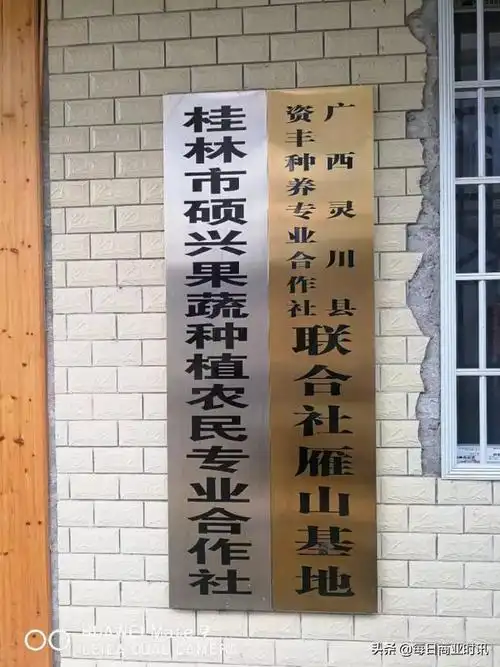 桂林市硕兴果蔬种植农民专业合作社
广西灵川县
资丰种养专业合作社
联合社雁山基地
HUAWEI Mate 9
LEICA DUAL CAMERA
头条 @每日商业时讯